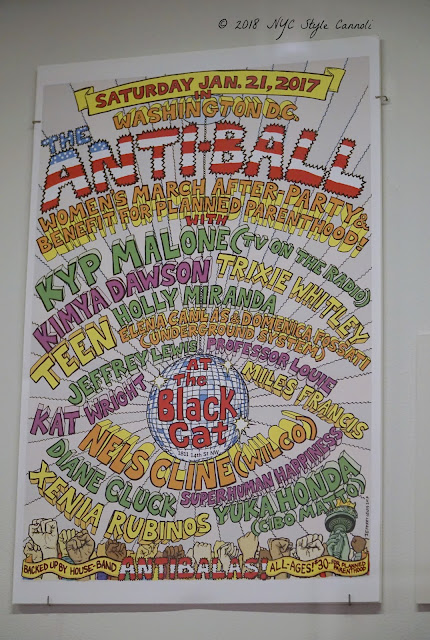 © 2018 NYC Style Cannoli
SATURDAY JAN. 21, 2017
IN
WASHINGTON D.C.
THE
ANTI-BALL
WOMEN'S MARCH AFTER-PARTY &
BENEFIT FOR PLANNED PARENTHOOD!
WITH
KYP MALONE (TV ON THE RADIO)
KIMYA DAWSON
TRIXIE WHITLEY
TEEN
HOLLY MIRANDA
ELENA CANLAS & DOMENICA FOSSATI
(UNDERGROUND SYSTEM)
JEFFREY LEWIS
PROFESSOR LOUIE
KAT WRIGHT
MILES FRANCIS
AT
The
Black
Cat
1811 14th St NW
NELS CLINE (WILCO)
DIANE CLUCK
SUPERHUMAN HAPPINESS
XENIA RUBINOS
YUKA HONDA
(CIBO MATTO)
BACKED UP BY HOUSE-BAND
ANTIBALAS!
ALL-AGES! $30
FOR PLANNED
PARENTHOOD